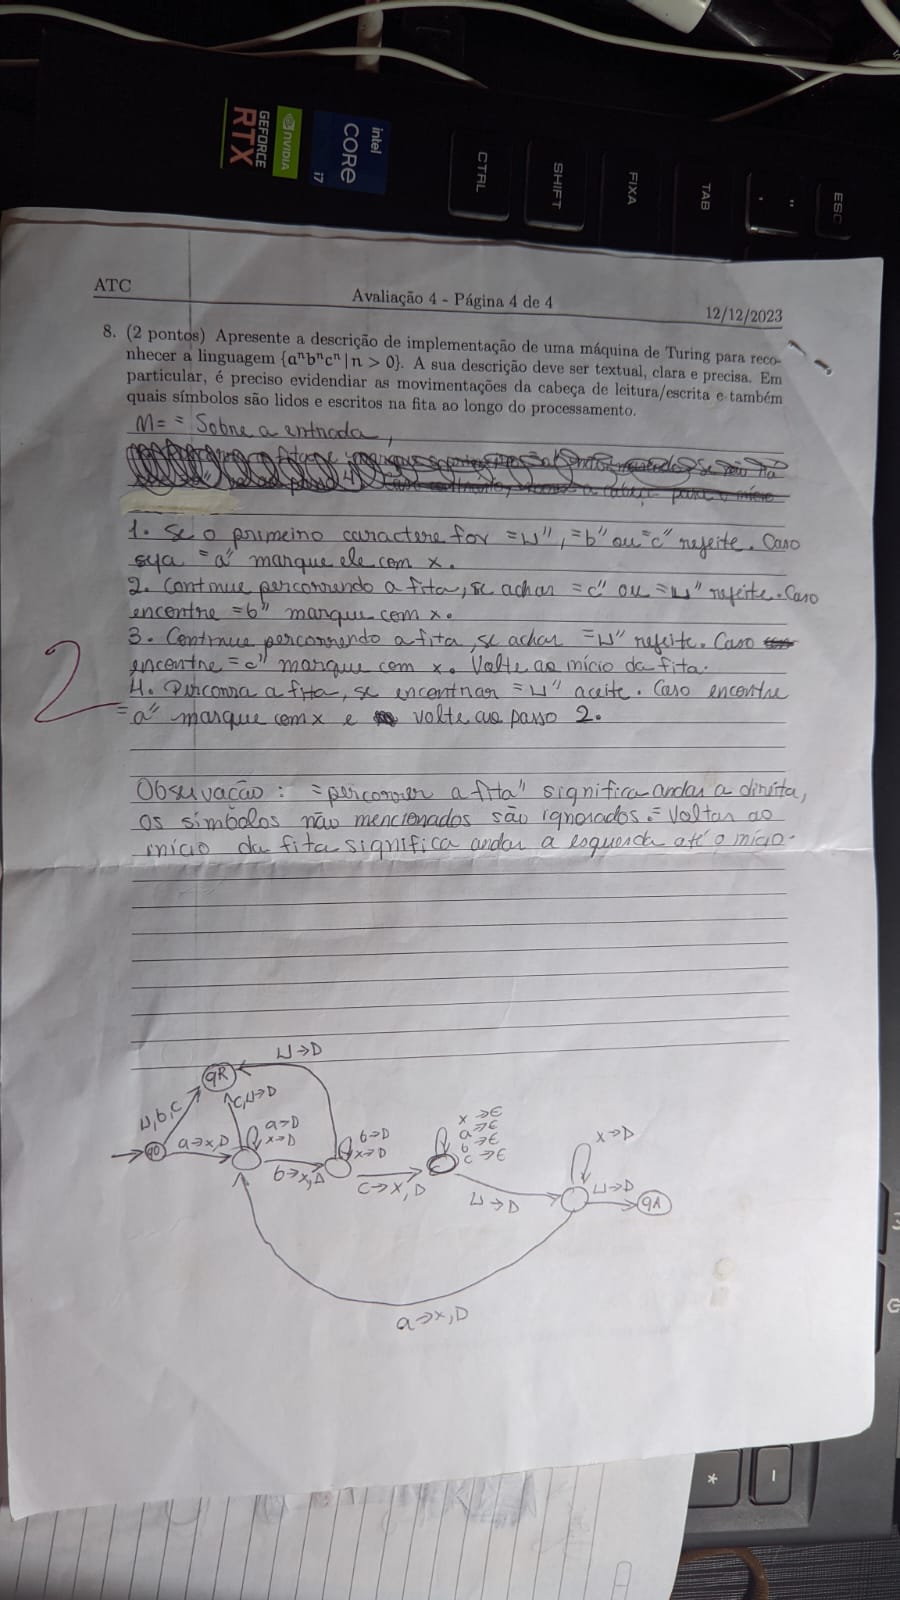 GEFORCE
RTX
NVIDIA
intel
CORE
i7
CTRL
SHIFT
FIXA
TAB
" '
ESC
ATC
Avaliação 4 - Página 4 de 4
12/12/2023
8. (2 pontos) Apresente a descrição de implementação de uma máquina de Turing para reco-
nhecer a linguagem {aⁿbⁿcⁿ|n > 0}. A sua descrição deve ser textual, clara e precisa. Em
particular, é preciso evidendiar as movimentações da cabeça de leitura/escrita e também
quais símbolos são lidos e escritos na fita ao longo do processamento.
M= = Sobre a entrada,
1. Se o primeiro caractere for "⊔", "b" ou "c" rejeite. Caso
seja "a" marque ele com x.
2. Continue percorrendo a fita, se achar "c" ou "⊔" rejeite. Caso
encontre "b" marque com x.
3. Continue percorrendo a fita, se achar "⊔" rejeite. Caso
encontre "c" marque com x. Volte ao início da fita.
4. Percorra a fita, se encontrar "⊔" aceite. Caso encontre
"a" marque com x e volte ao passo 2.
2
Observação: "percorrer a fita" significa andar a direita,
os símbolos não mencionados são ignorados. "Voltar ao
início da fita significa andar a esquerda até o início.
⊔→D
qR
⊔,b,c
c,⊔→D
a→D
x→D
b→D
x→D
x→E
a→E
b→E
c→E
x→D
q0
a→x,D
b→x,D
c→x,D
⊔→D
⊔→D
qA
a→x,D
*
-